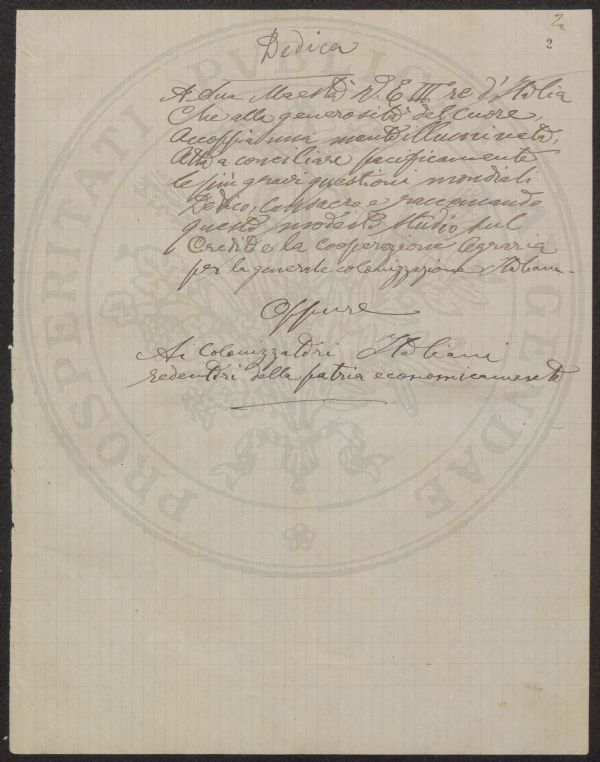 2a
2
Dedica
A Sua Maestà V. E III re d'Italia
Che alla generosità del Cuore,
Accoppia una mente illuminata,
Atta a conciliare pacificamente
le più gravi questioni mondiali
Dedico, Consacro e raccomando
questo modesto Studio sul
Credito e la cooperazione Agraria
per la generale colonizzazione Italiana.
Oppure
Ai Colonizzatori Italiani
redentori della patria economicamente
PROSPERITATI PVBLICAE AVGENDAE